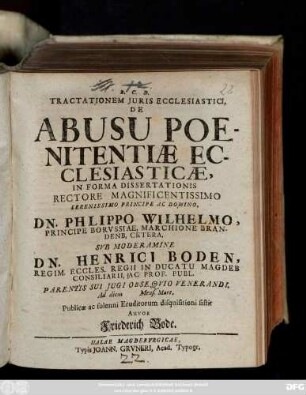 B. C. D.
TRACTATIONEM JURIS ECCLESIASTICI,
DE
ABUSU POE-
NITENTIÆ EC-
CLESIASTICÆ,
IN FORMA DISSERTATIONIS
RECTORE MAGNIFICENTISSIMO
SERENISSIMO PRINCIPE AC DOMINO,
DN. PHLIPPO WILHELMO,
PRINCIPE BORVSSIAE, MARCHIONE BRAN-
DENB, CETERA,
SVB MODERAMINE
DN. HENRICI BODEN,
REGIM. ECCLES. REGII IN DUCATU MAGDEB
CONSILIARII, AC PROF. PUBL.
PARENTIS SUI JUGI OBSEQVIO VENERANDI,
Ad diem Mens. Mart.
Publicæ ac solenni Eruditorum disquisitioni sistit
AUTOR
Friederich Bode.
HALAE MAGDEBURGICAE,
Typis JOANN. GRVNERI, Acad. Typogr.